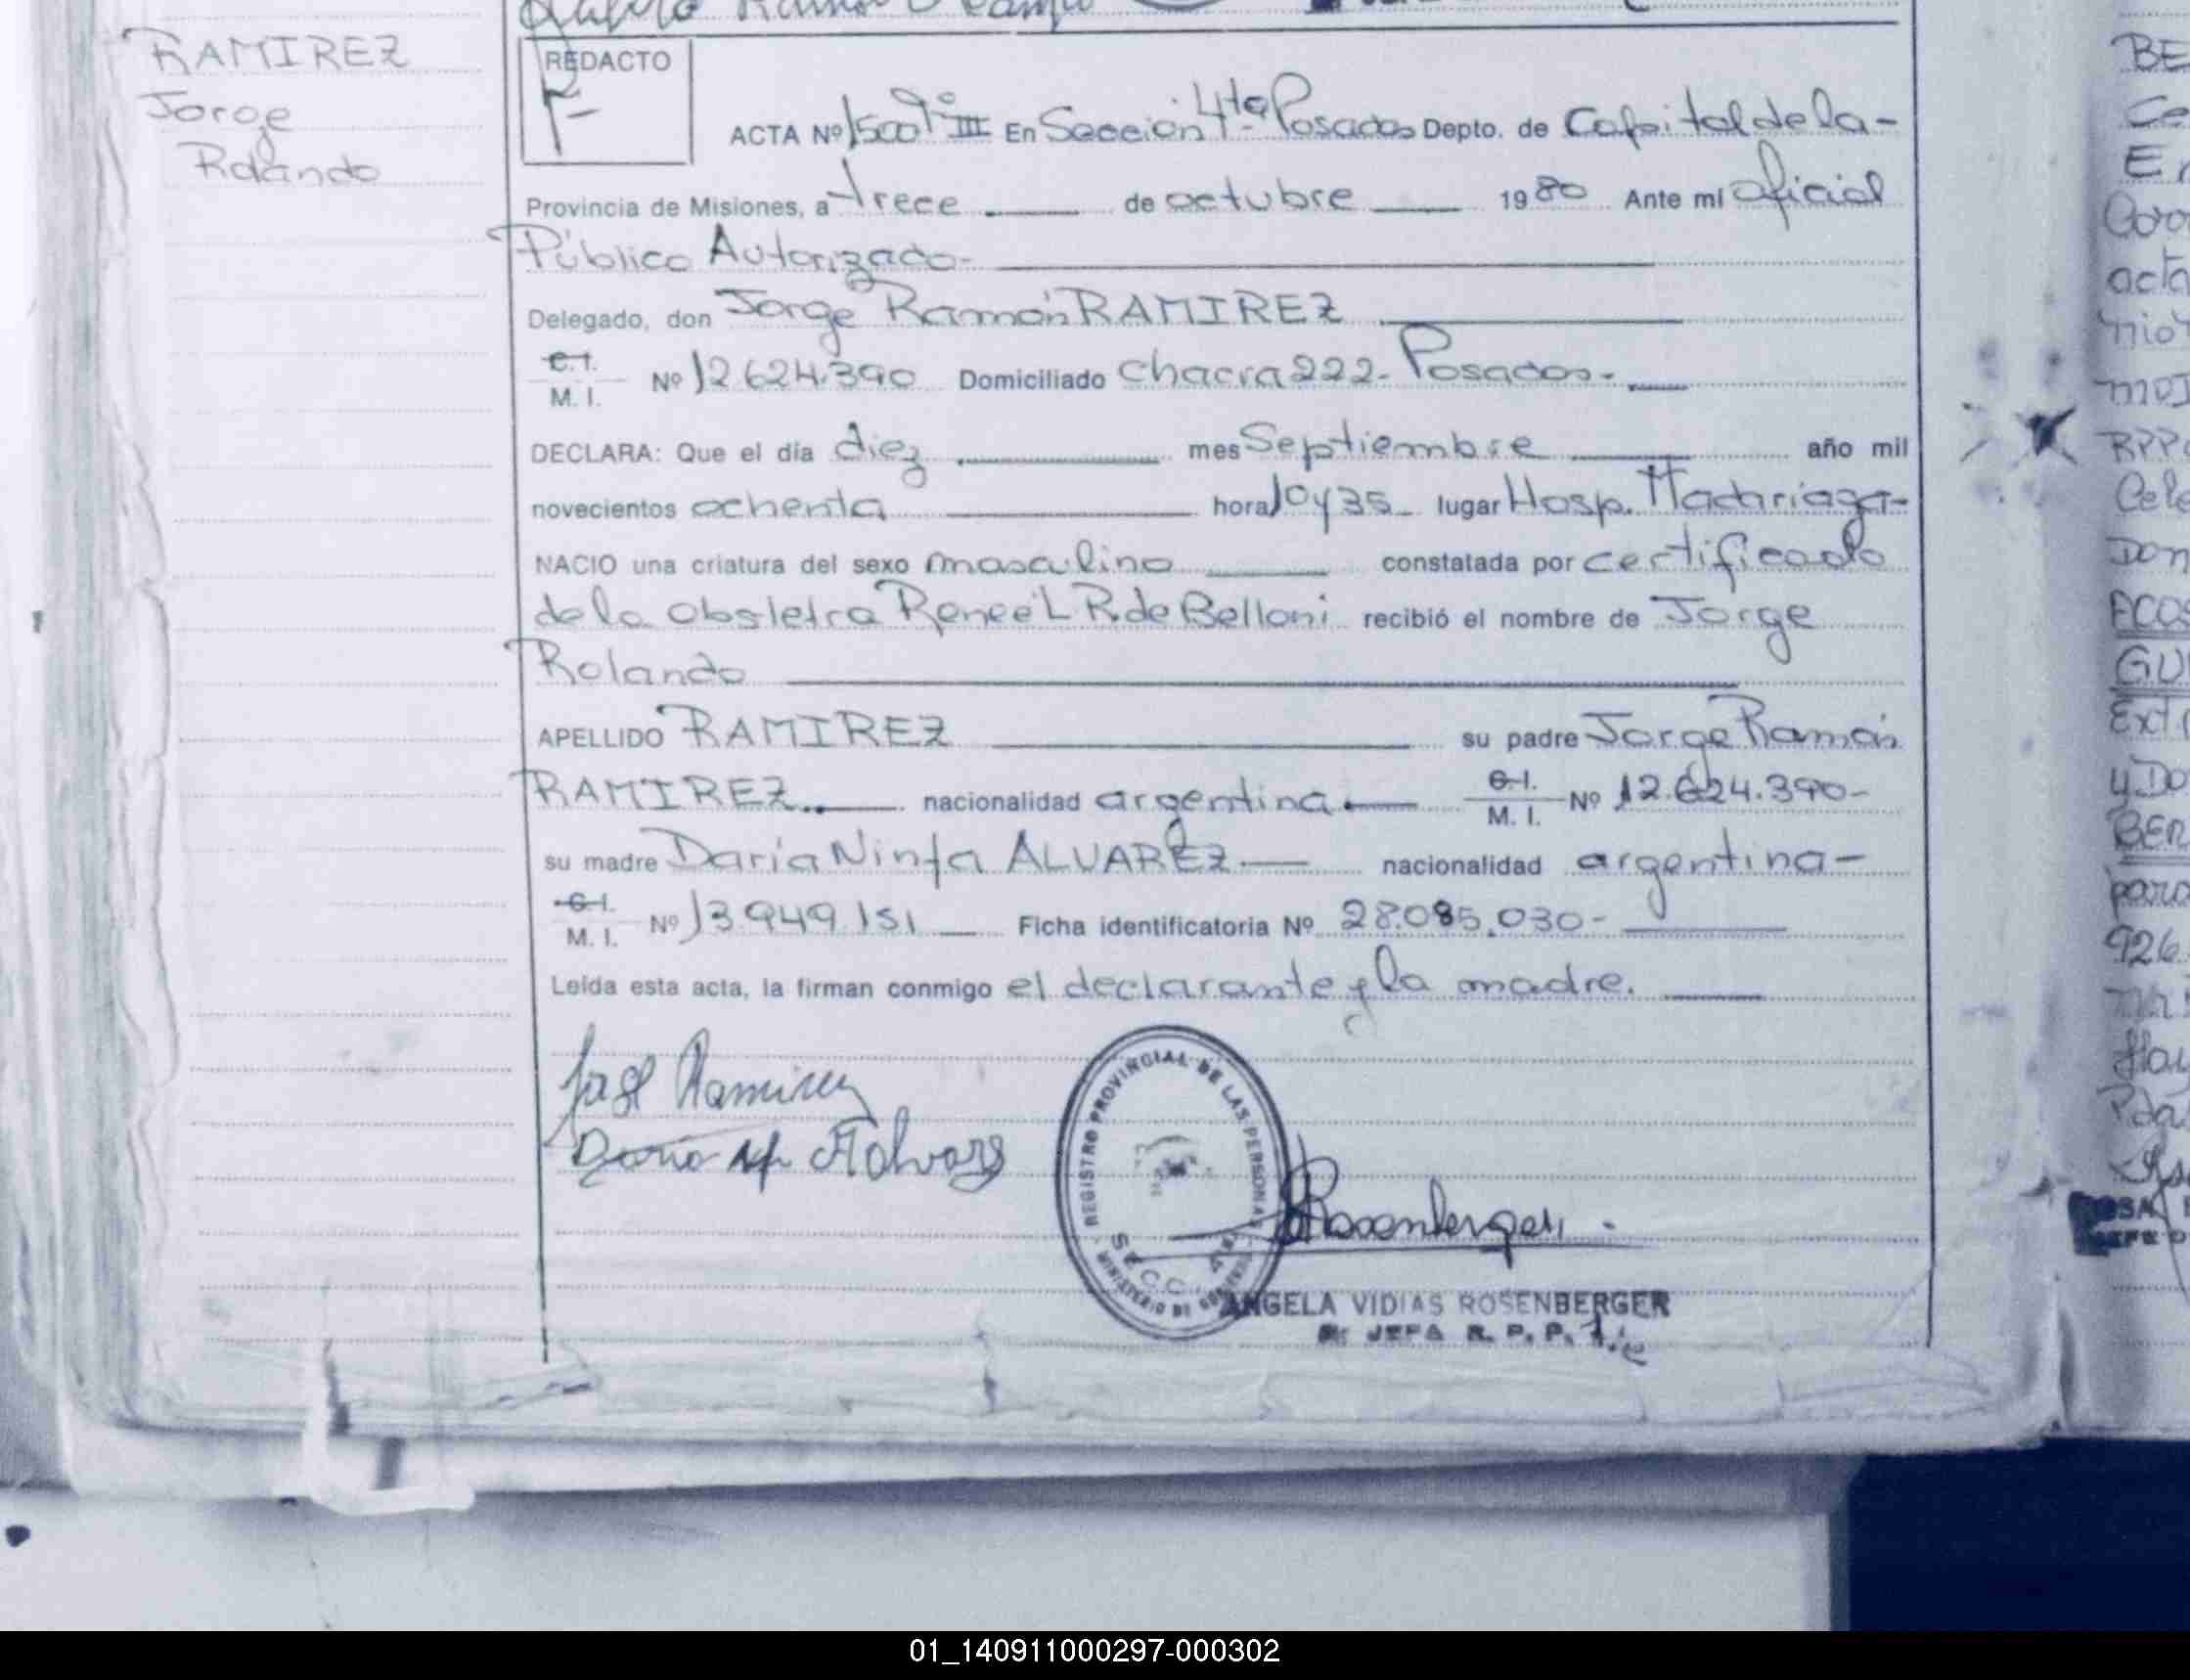 RAMIREZ
Jorge
Rolando
REDACTO
ACTA Nº 1500 Tº III En Sección 4ta Posadas Depto. de Capital de la-
Provincia de Misiones, a trece de octubre 1980 Ante mí oficial
Público Autorizado-
Delegado, don Jorge Ramón RAMIREZ
C.I.
M. I. Nº 12.624.390 Domiciliado Chacra 222- Posadas.
DECLARA: Que el día diez mes Septiembre año mil
novecientos ochenta hora 10 y 35 lugar Hosp. Madariaga-
NACIO una criatura del sexo masculino constatada por certificado
de la obstetra Reneé L R. de Belloni recibió el nombre de Jorge
Rolando
APELLIDO RAMIREZ su padre Jorge Ramón
RAMIREZ nacionalidad argentina C.I. M. I. Nº 12.624.390-
su madre Daria Ninfa ALVAREZ nacionalidad argentina-
C.I.
M. I. Nº 13.949.151 Ficha identificatoria Nº 28.085.030-
Leída esta acta, la firman conmigo el declarante y la madre.
Ramirez
REGISTRO PROVINCIAL DE LAS PERSONAS
MINISTERIO DE GOBIERNO
SECC. 4ta
Rosenberger
ANGELA VIDIAS ROSENBERGER
JEFA R. P. P.
01_140911000297-000302